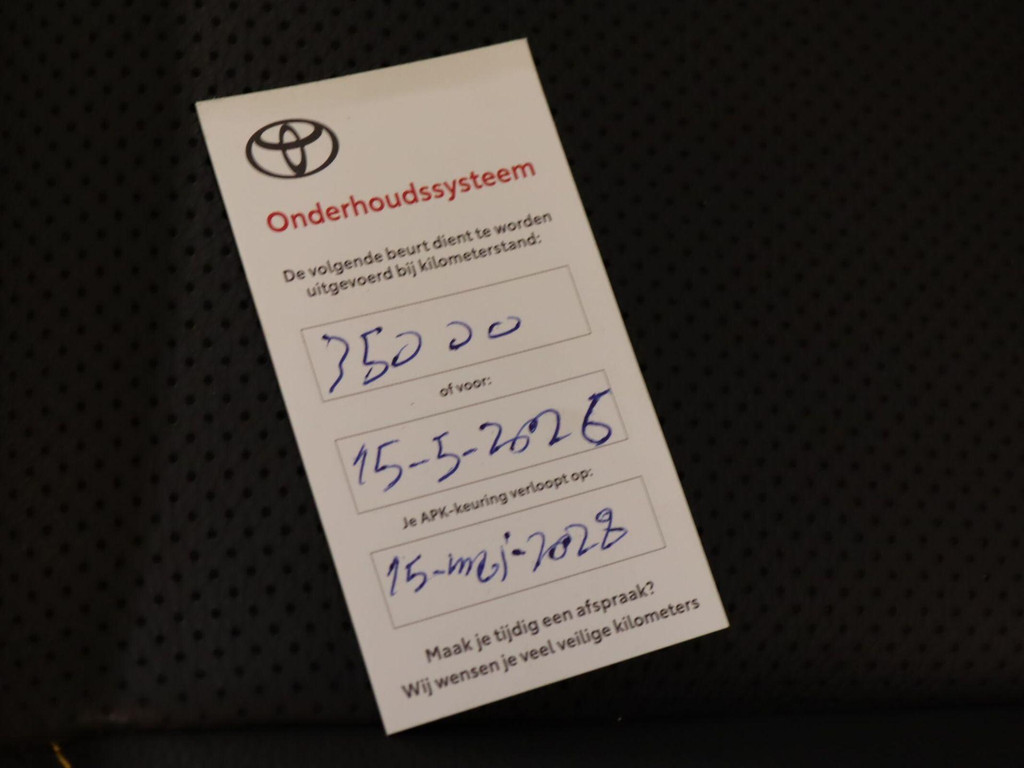 Onderhoudssysteem
De volgende beurt dient te worden
uitgevoerd bij kilometerstand:
35000
of voor:
15-5-2026
Je APK-keuring verloopt op:
15-mei-2028
Maak je tijdig een afspraak?
Wij wensen je veel veilige kilometers